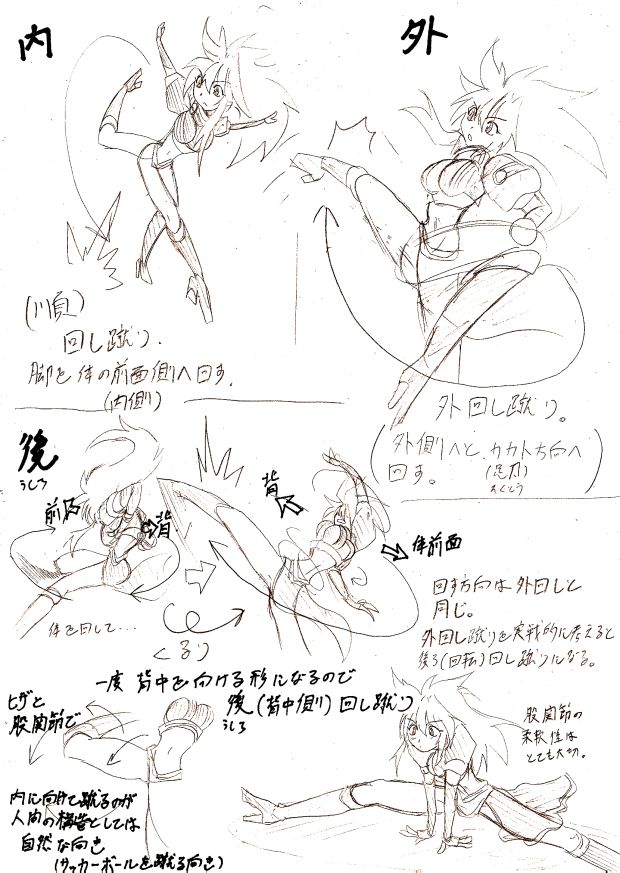 内
(順)
回し蹴り.
脚を体の前面側へ回す.
(内側)
外
外回し蹴り。
(外側へと、カカト方向へ
回す。(足刀)
そくとう)
後
うしろ
前
背
体を回して…
くるり
背
体前面
回す方向は外回しと
同じ。
外回し蹴りを実戦的に考えると
後ろ(回転)回し蹴りになる。
一度 背中を向ける形になるので
後(背中側)回し蹴り
うしろ
ヒザと
股関節で
内に向けて蹴るのが
人間の構造としては
自然な向き
(サッカーボールを蹴る向き)
股関節の
柔軟性は
とても大切。